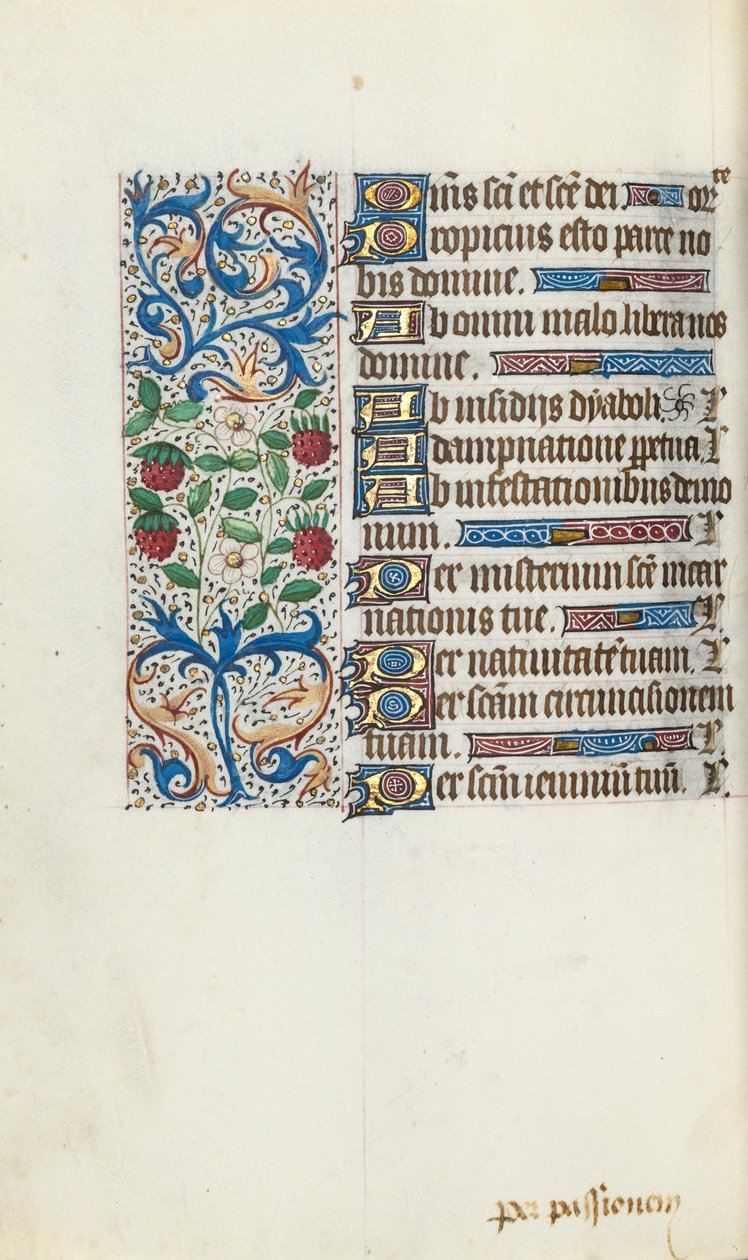 Om̄s sc̄i et sc̄e dei. or te
Propicius esto parce no
bis domine.
Ab omni malo libera nos
domine.
Ab insidijs dyaboli. L.
A dampnatione ꝑpetua. L
Ab infestationibus demo
num. L
Per misterium sc̄e incar
nationis tue. L
Per natiuitatē tuam. L.
Per sc̄am circuncisionem
tuam. L.
Per sc̄m ieiuniū tuū. L.
per passionem